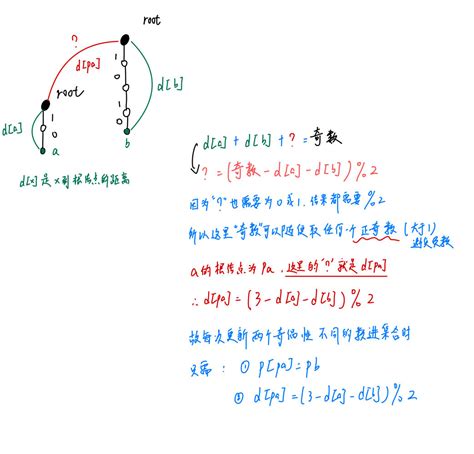 root
?
d[pa]
root
d[a]
d[b]
1
0
1
0
1
0
a
b
d[x]是x到根结点的距离
d[a] + d[b] + ? = 奇数
? = (奇数 - d[a] - d[b]) % 2
因为"?"也需要为0或1, 结果都需要 % 2
所以这里"奇数"可以随便取任何个正奇数 (大于1)
避免负数
a的根结点为pa, 这里的"?"就是d[pa]
∴ d[pa] = (3 - d[a] - d[b]) % 2
故每次更新两个奇偶性不同的数进集合时
只需: ① p[pa] = pb
② d[pa] = (3 - d[a] - d[b]) % 2